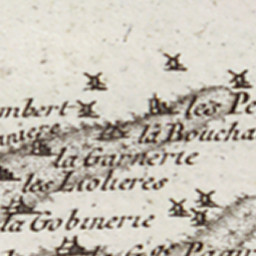 mbert
les Pe
niere
la Boucha
la Garnerie
les Liolieres
la Gobinerie